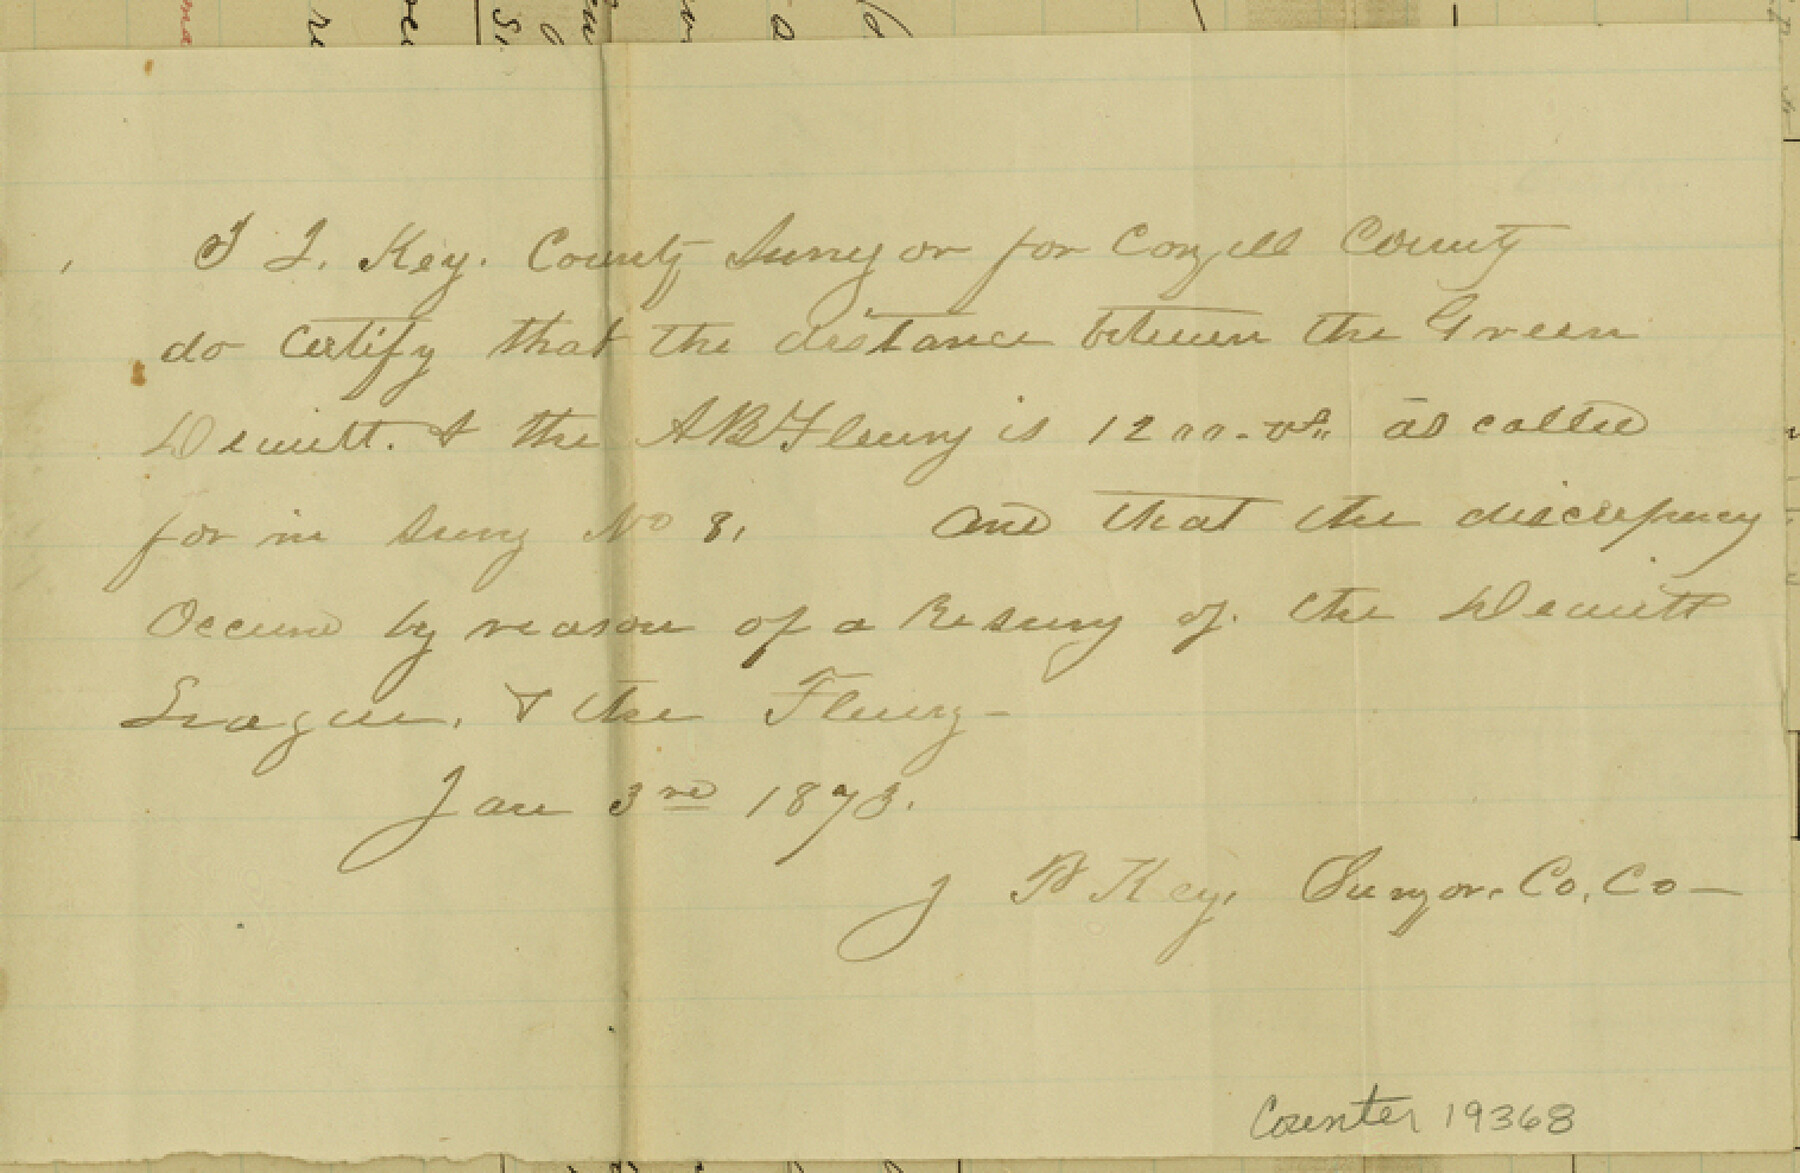 I J. Key. County Surveyor for Coryell County
do certify that the distance between the Green
Dewitt. & the A B Fleury is 1200 - vrs as called
for in Survy No 8, and that the discrepency
Occured by reason of a Resurvy of the Dewitt
League, & the Fleury -
Jan 3rd 1873.
J P Key, Survyor. Co. Co -
Counter 19368